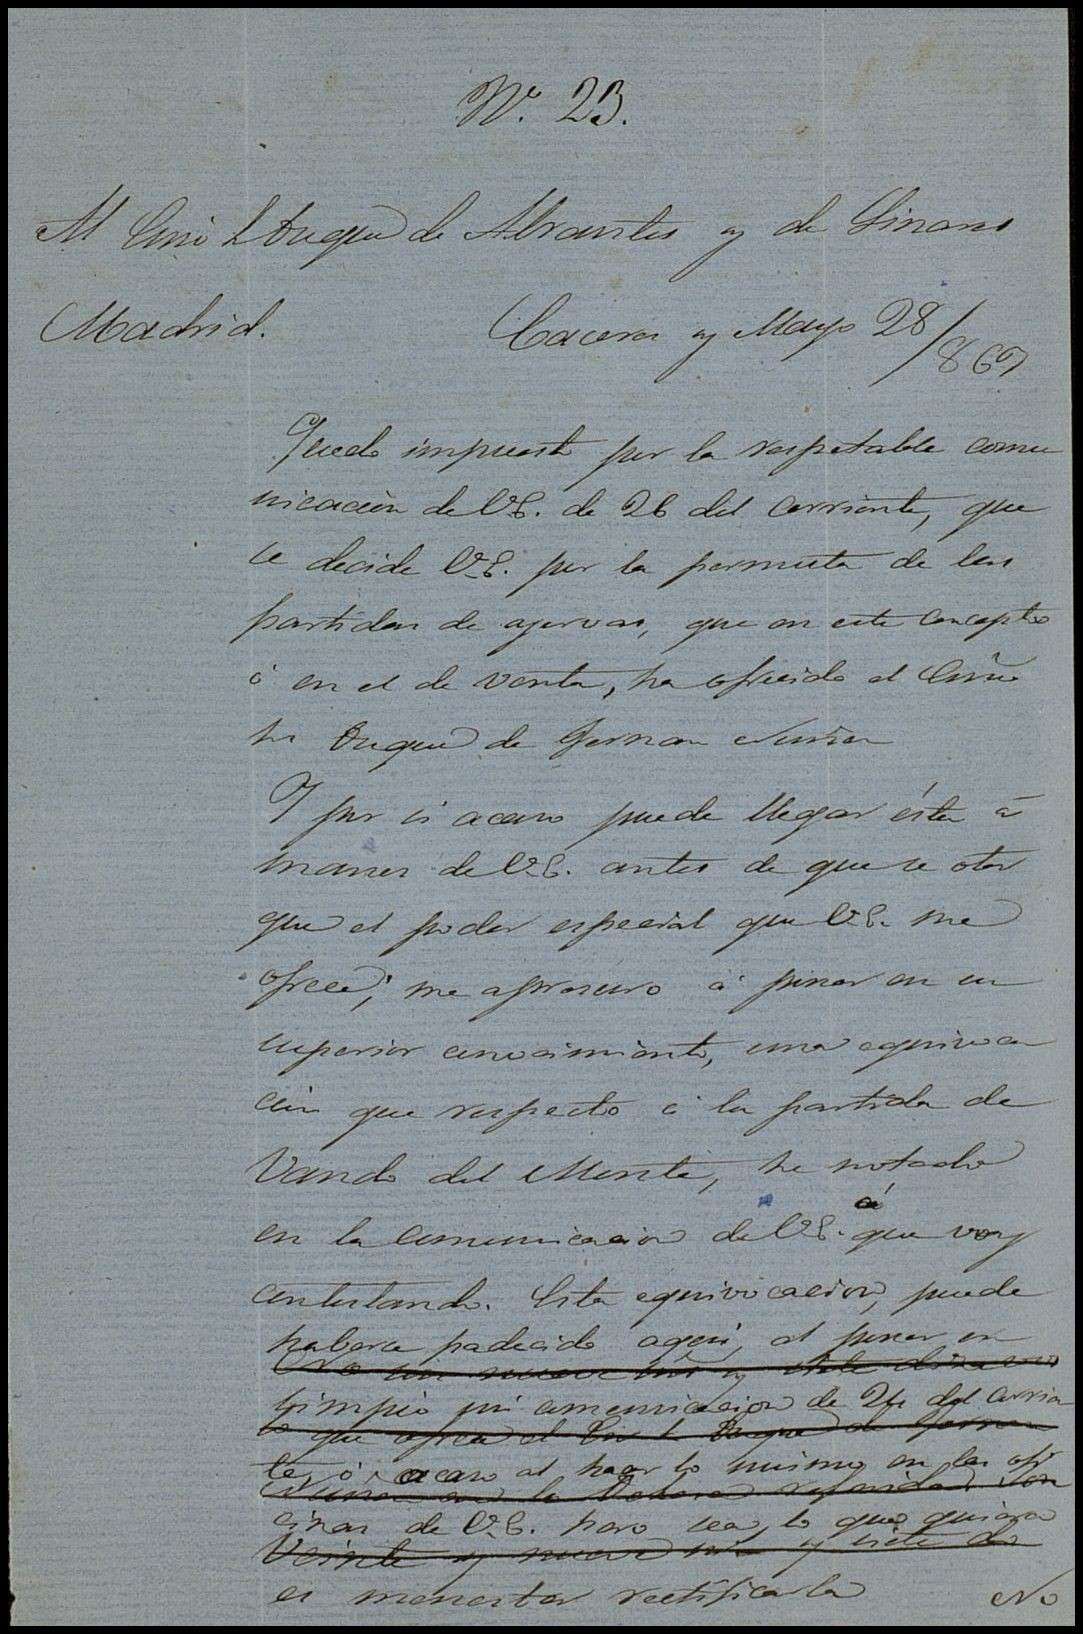 Nº. 23.
Al Exmo Sr Duque de Abrantes y de Linares
Madrid. Caceres y Mayo 28/869
Quedo impuesto por la respetable comu
nicacion de V.E. de 26 del corriente, que
se decide V.E. por la permuta de las
partidas de yervas, que en este concepto
ó en el de venta, ha ofrecido el Exmo
Sr Duque de Fernan Nuñez
Y por si acaso puede llegar ésta á
manos de V.E. antes de que se otor
gue el poder especial que V.E. me
ofrece, me apresuro á poner en su
superior conocimiento, una equivoca
cion que respecto á la partida de
Vando del Monte, he notado
en la comunicacion de V.E. á que voy
contestando. Esta equivocacion, puede
haberse padecido aqui, al poner en
No son nueve mil y siete
limpio mi comunicacion de 24 del corrien
que ofrece el Exmo Sr Duque de Fernan
te, ó acaso al hacer lo mismo en las ofi
Nuñez en la Dehesa referida, son
cinas de V.E. pero sea lo que quiera
Veinte y nueve mil y siete
es menester rectificarla No